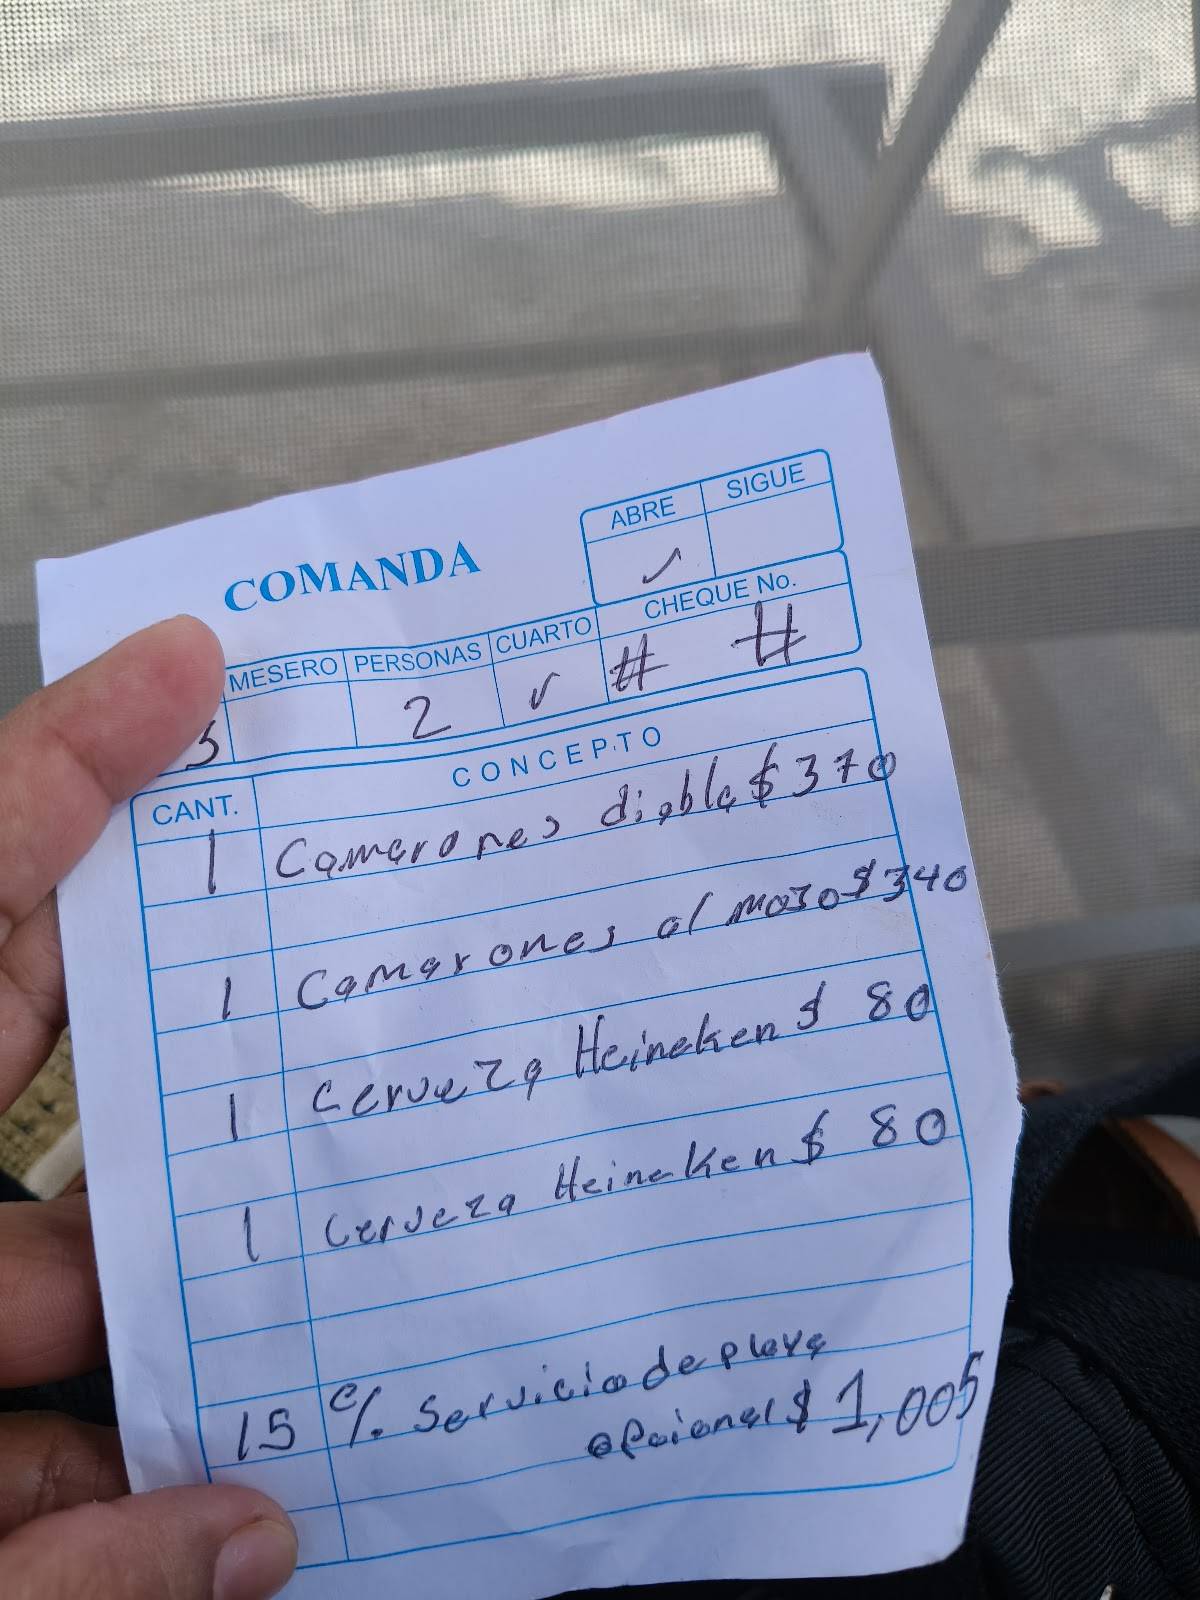 COMANDA
ABRE SIGUE
✓
MESERO PERSONAS CUARTO CHEQUE No.
2 ✓ # #
CANT. CONCEPTO
1 Camarones diabla $ 370
1 Camarones al mojo $ 340
1 Cerveza Heineken $ 80
1 Cerveza Heineken $ 80
15 % Servicio de playa
opcional $ 1,005